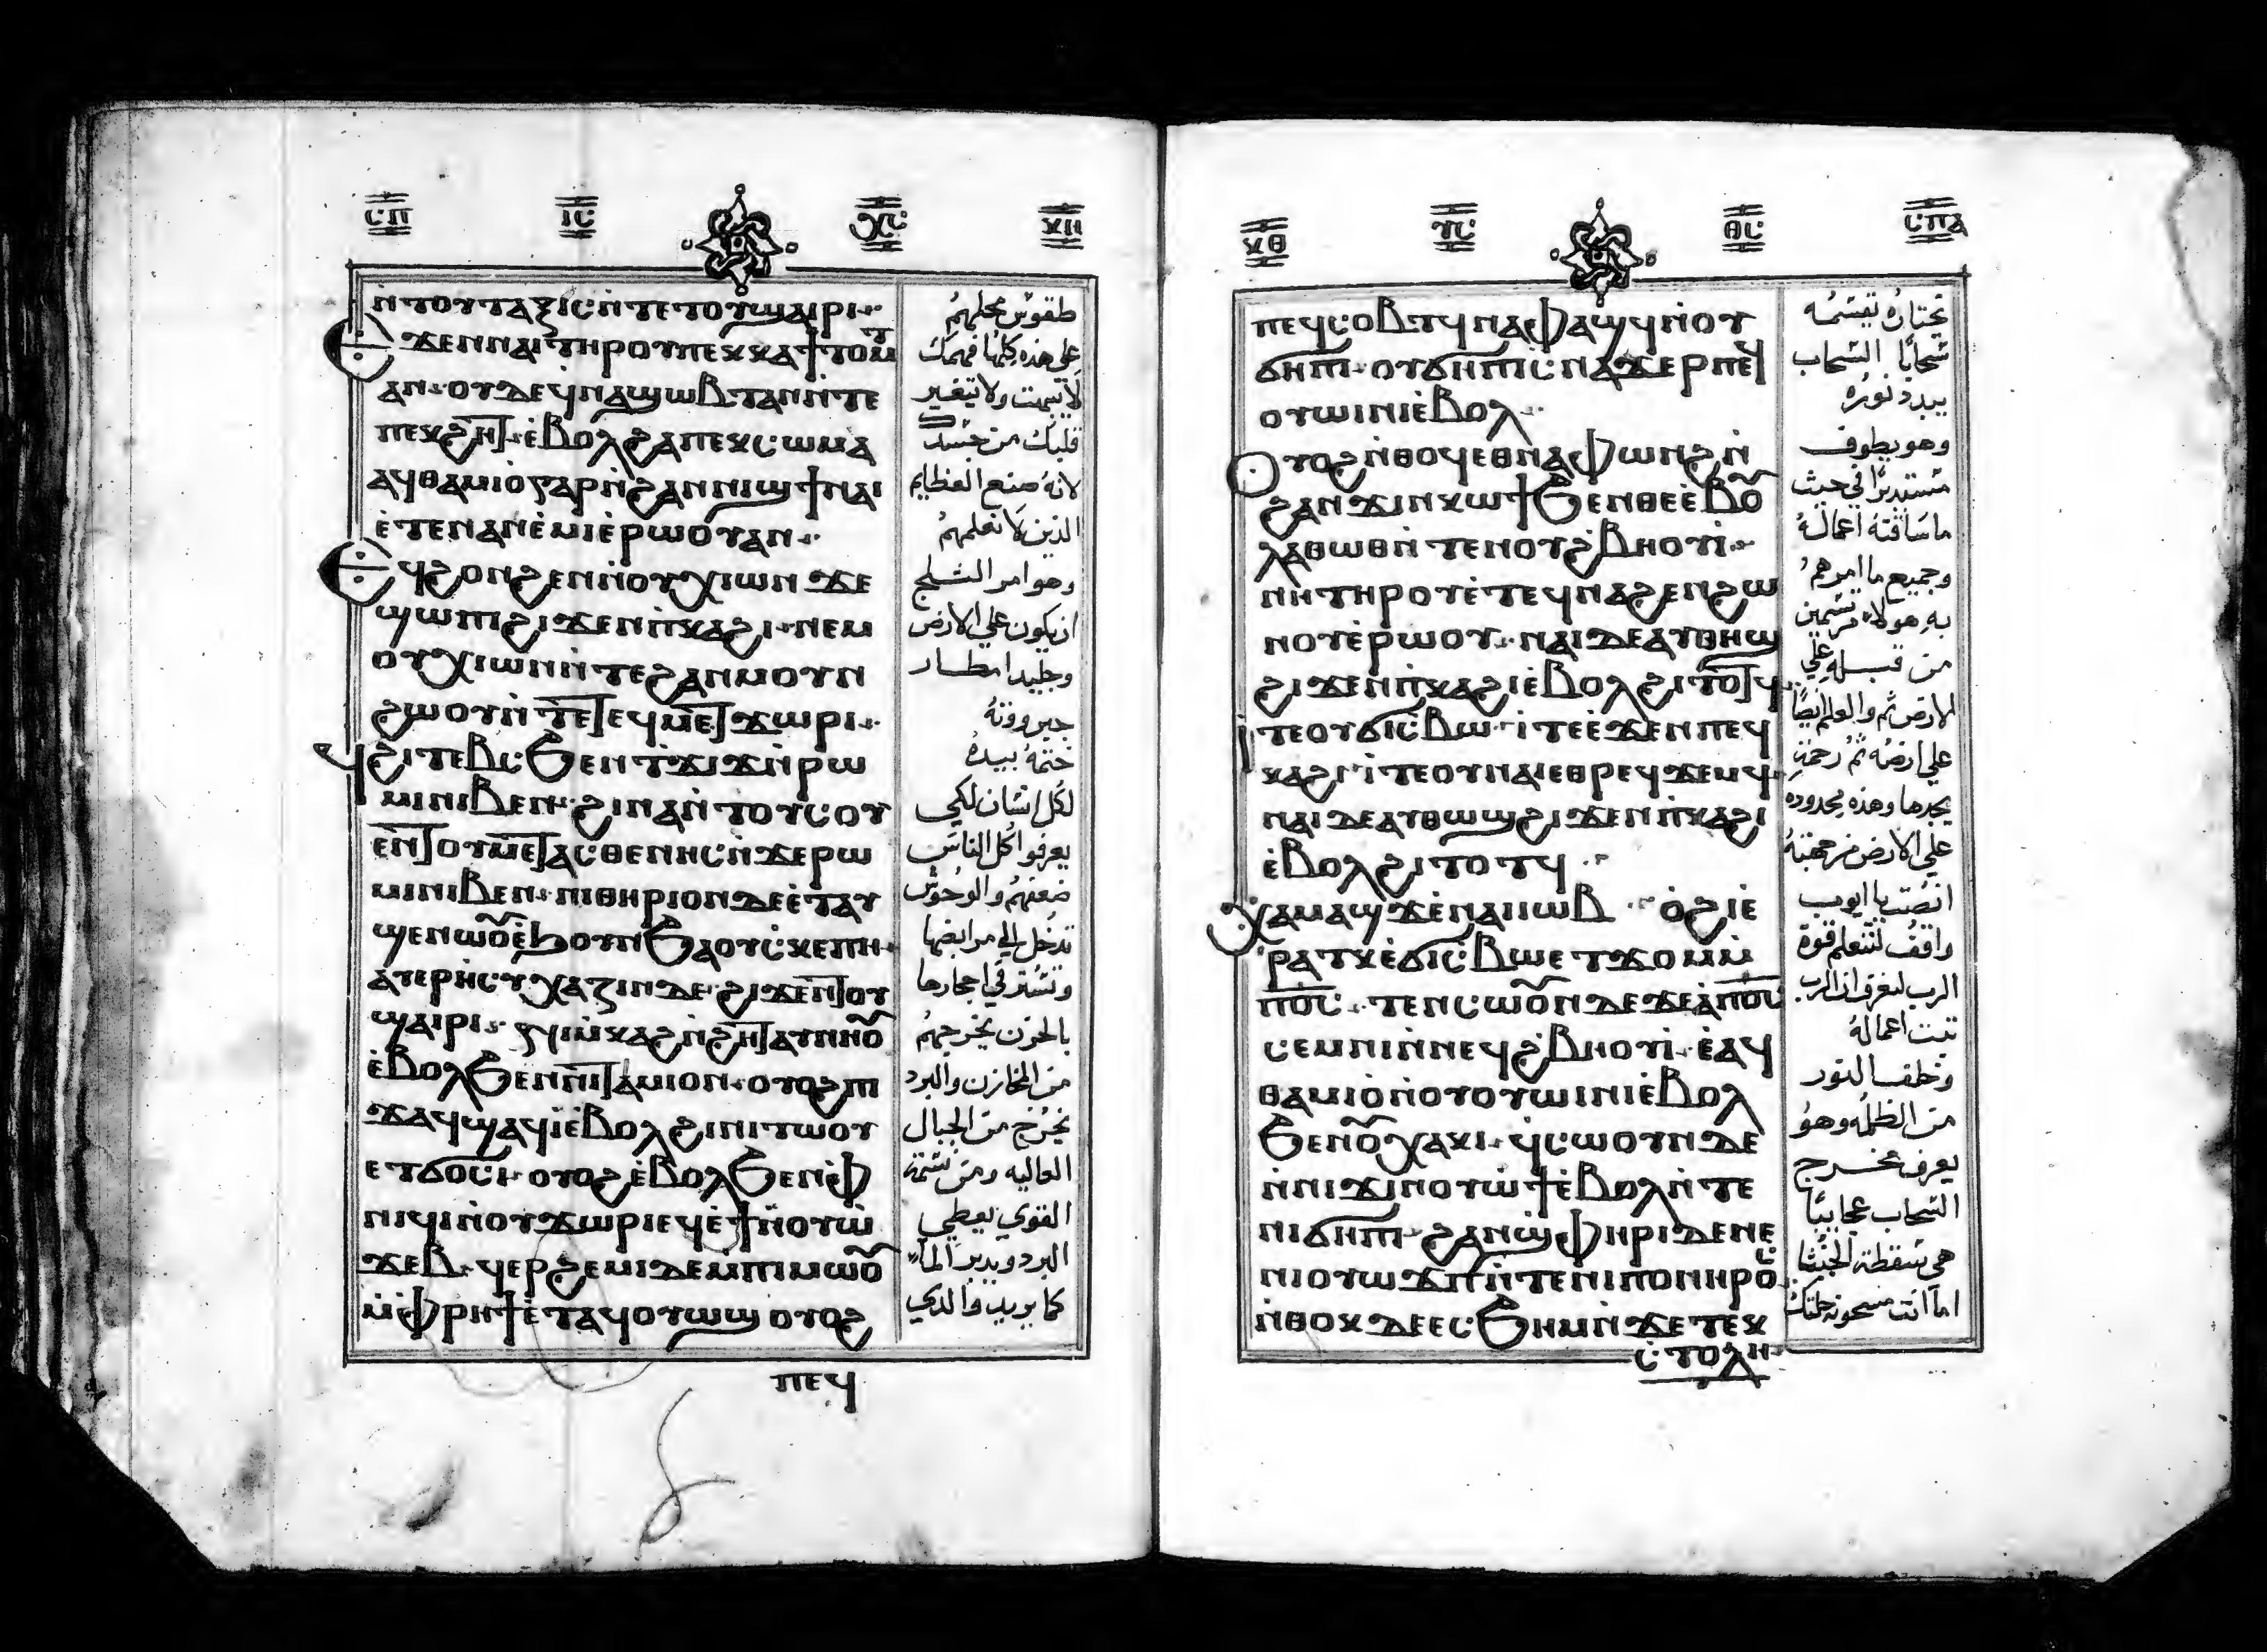 ⲥⲡ ⲓⲥ ⲭⲥ ⲭⲏ
ⲛ̇ⲧⲟⲩⲧⲁⲝⲓⲥⲛ̇ⲧⲉⲧⲟⲩϣⲁⲓⲣⲓ
ⲉϫⲉⲛⲛⲁⲓⲧⲏⲣⲟⲩⲡⲉⲕⲕⲁϯⲧⲟⲙⲧ
ⲁⲛ· ⲟⲩⲇⲉϥ̇ⲛⲁϣⲱⲃⲧⲁⲛⲛ̇ⲧⲉ
ⲡⲉⲕϩⲏⲧ· ⲉ̇ⲃⲟⲗϩⲁⲡⲉⲕⲥⲱⲙⲁ
ⲁϥⲑⲁⲙⲓⲟ̇ⲅⲁⲣⲛ̇ϩⲁⲛⲛⲓϣϯⲛⲁⲓ
ⲉ̇ⲧⲉⲛⲁⲛⲉ̇ⲙⲓⲉ̇ⲣⲱⲟⲩⲁⲛ·
ⲉϥϩⲟⲛϩⲉⲛⲛ̇ⲟⲩⲭⲓⲱⲛϫⲉ
ϣⲱⲡⲓϩⲓϫⲉⲛⲡ̇ⲕⲁϩⲓ· ⲛⲉⲙ
ⲟⲩⲭⲓⲱⲛⲛ̇ⲧⲉϩⲁⲛⲙⲟⲩⲛ
ϩⲱⲟⲩⲛ̇ⲧⲉⲧⲉϥⲙⲉⲧϫⲱⲣⲓ·
ϥϩⲓⲧⲉⲃⲥϧⲉⲛⲧϫⲓϫⲛ̇ⲣⲱ
ⲙⲓⲛⲓⲃⲉⲛ· ϩⲓⲛⲁⲛ̇ⲧⲟⲩⲥⲟⲩ
ⲉⲛⲧⲟⲩⲙⲉⲧⲁⲥⲑⲉⲛⲏⲥⲛ̇ϫⲉⲣⲱ
ⲙⲓⲛⲓⲃⲉⲛ· ⲡⲓⲑⲏⲣⲓⲟⲛⲇⲉⲉ̇ⲧⲁⲩ
ϣⲉⲛⲱⲟ̃ⲉ̇ϧⲟⲩⲛϧⲁⲟⲩⲥ̇ⲕⲉⲡⲏ·
ⲁⲩⲉⲣⲏ̇ⲥⲩⲭⲁⲍⲓⲛⲇⲉ· ϩⲓϫⲉⲛⲧⲟⲩ
ϣⲁⲓⲣⲓ· ϥⲓⲙ̇ⲕⲁϩⲛ̇ϩⲏⲧⲁⲩⲛⲏⲟ̃
ⲉ̇ⲃⲟⲗϧⲉⲛⲛⲓⲧⲁⲙⲓⲟⲛ· ⲟⲩⲟϩⲡⲓ
ϫⲁϥϣⲁϥⲓ̇ⲉ̇ⲃⲟⲗϩⲓⲛⲓⲧⲱⲟⲩ
ⲉⲧϭⲟⲥⲓ· ⲟⲩⲟϩⲉ̇ⲃⲟⲗϧⲉⲛⲫ
ⲛⲓϥⲓⲛ̇ⲟⲩϫⲱⲣⲓⲉϥⲉ̇ϯⲛ̇ⲟⲩⲱ
ϫⲉⲃ· ϥⲉⲣϩⲉⲙⲓⲇⲉⲙⲡⲓⲙⲱⲟ̃
ⲙ̇ⲫⲣⲏϯⲉ̇ⲧⲁϥⲟⲩⲱϣ ⲟⲩⲟϩ
ⲡⲉϥ
طقوس محلهم
علي هذه كلها فهمك
لا تبهت ولا يتغير
قلبك من جسد
لانه صنع العظايم
الذين لا نعلمهم
وهو امر الثلج
ان يكون علي الارض
وجليد امطار
جبروته
ختمه بيده
لكل انسان لكي
يعرفوا كل الناس
ضعفهم والوحوش
تدخل الي مرابضها
وتستتر في اجحارها
بالحزن يخرجهم
من المخازن والبرد
يخرج من الجبال
العاليه ومن نسمة
القوي يعطي
البرد ويدبر الما
كما يريد والذي
ⲭⲑ ⲩⲥ ⲑⲥ ⲥⲡⲁ
ⲡⲉϥⲥⲟⲃⲧϥⲛⲁⲫⲁϣϥⲛ̇ⲟⲩ
ϭⲏⲡⲓ· ⲟⲩϭⲏⲡⲓⲥⲛⲁϫⲉⲣⲡⲉϥ
ⲟⲩⲱⲓⲛⲓⲉ̇ⲃⲟⲗ·
ⲟⲩⲟϩⲛ̇ⲑⲟϥⲉⲑⲛⲁⲫⲱⲛϩⲛ̇
ϩⲁⲛϫⲓⲛⲕⲱϯϧⲉⲛⲑⲉⲉ̇ⲃⲟ̃
ⲗⲁⲑⲱⲑⲛ̇ⲧⲉⲛⲟⲩϩ̇ⲃⲏⲟⲩⲓ̇·
ⲛⲏⲧⲏⲣⲟⲩⲉ̇ⲧⲉϥⲛⲁϩⲉⲛϩⲱ
ⲛⲟⲩⲉ̇ⲣⲱⲟⲩ· ⲛⲁⲓⲇⲉⲁⲩⲑⲏϣ
ϩⲓϫⲉⲛⲡ̇ⲕⲁϩⲓⲉ̇ⲃⲟⲗϩⲓⲧⲟⲧϥ
ⲓⲧⲉⲟⲩϭⲓⲥ̇ⲃⲱ· ⲓ̇ⲧⲉⲉ̇ϫⲉⲛⲡⲉϥ
ⲕⲁϩⲓ· ⲓ̇ⲧⲉⲟⲩⲛⲁⲓⲉⲑⲣⲉϥϫⲉⲙϥ·
ⲛⲁⲓⲇⲉⲁⲩⲑⲱϣϩⲓϫⲉⲛⲡ̇ⲕⲁϩⲓ
ⲉ̇ⲃⲟⲗϩⲓⲧⲟⲧϥ·
ϭⲁⲙⲁϣϫⲉ̇ⲛⲁⲓⲓⲱⲃ · ⲟ̇ϩⲓⲉ̇
ⲣⲁⲧⲕⲉ̇ϭⲓⲥ̇ⲃⲱⲉⲧϫⲟⲙⲙ̇
ⲡⲟ̅ⲥ̅· ⲧⲉⲛⲥⲱⲟ̃ⲛⲇⲉϫⲉⲁ̇ⲡⲟ̅ⲥ̅
ⲥⲉⲙⲛⲓⲛ̇ⲛⲉϥϩ̇ⲃⲏⲟⲩⲓ̇· ⲉ̇ⲁϥ
ⲑⲁⲙⲓⲟ̇ⲛ̇ⲟⲩⲟⲩⲱⲓⲛⲓⲉ̇ⲃⲟⲗ
ϧⲉⲛⲟ̃ⲭⲁⲕⲓ· ϥ̇ⲥⲱⲟⲩⲛⲇⲉ
ⲛ̇ⲛⲓϫⲓⲛⲟⲩⲱϯⲉ̇ⲃⲟⲗⲛ̇ⲧⲉ
ⲛⲓϭⲏⲡⲓ· ϩⲁⲛϣ̇ⲫⲏⲣⲓⲇⲉⲛⲉ
ⲛⲓⲟⲩⲱϫⲡⲛ̇ⲧⲉⲛⲓⲡⲟⲛⲏⲣⲟⲥ
ⲛ̇ⲑⲟⲕⲇⲉⲉⲥϧⲏⲙⲛ̇ϫⲉⲧⲉⲕ
ⲥ̇ⲧⲟⲗⲏ·
تختاره تقسمه
سحابا السحاب
يبدد نوره
وهو يطوف
مستديرا في حيث
ما ساقته اعماله
وجميع ما امرهم
به هولاء مرتسمين
من قبله علي
الارض ثم والعلم ايضا
علي ارضه ثم رحمة
يجدها وهذه محدوده
علي الارض من جهته
انصت يا ايوب
واقف لتتعلم قوة
الرب لنعرف ان الرب
ثبت اعماله
وخلق النور
من الظلمه وهو
يعرف مخرج
السحاب عجايبا
هي سقطة الخبثا
اما انت مسخونه حلتك